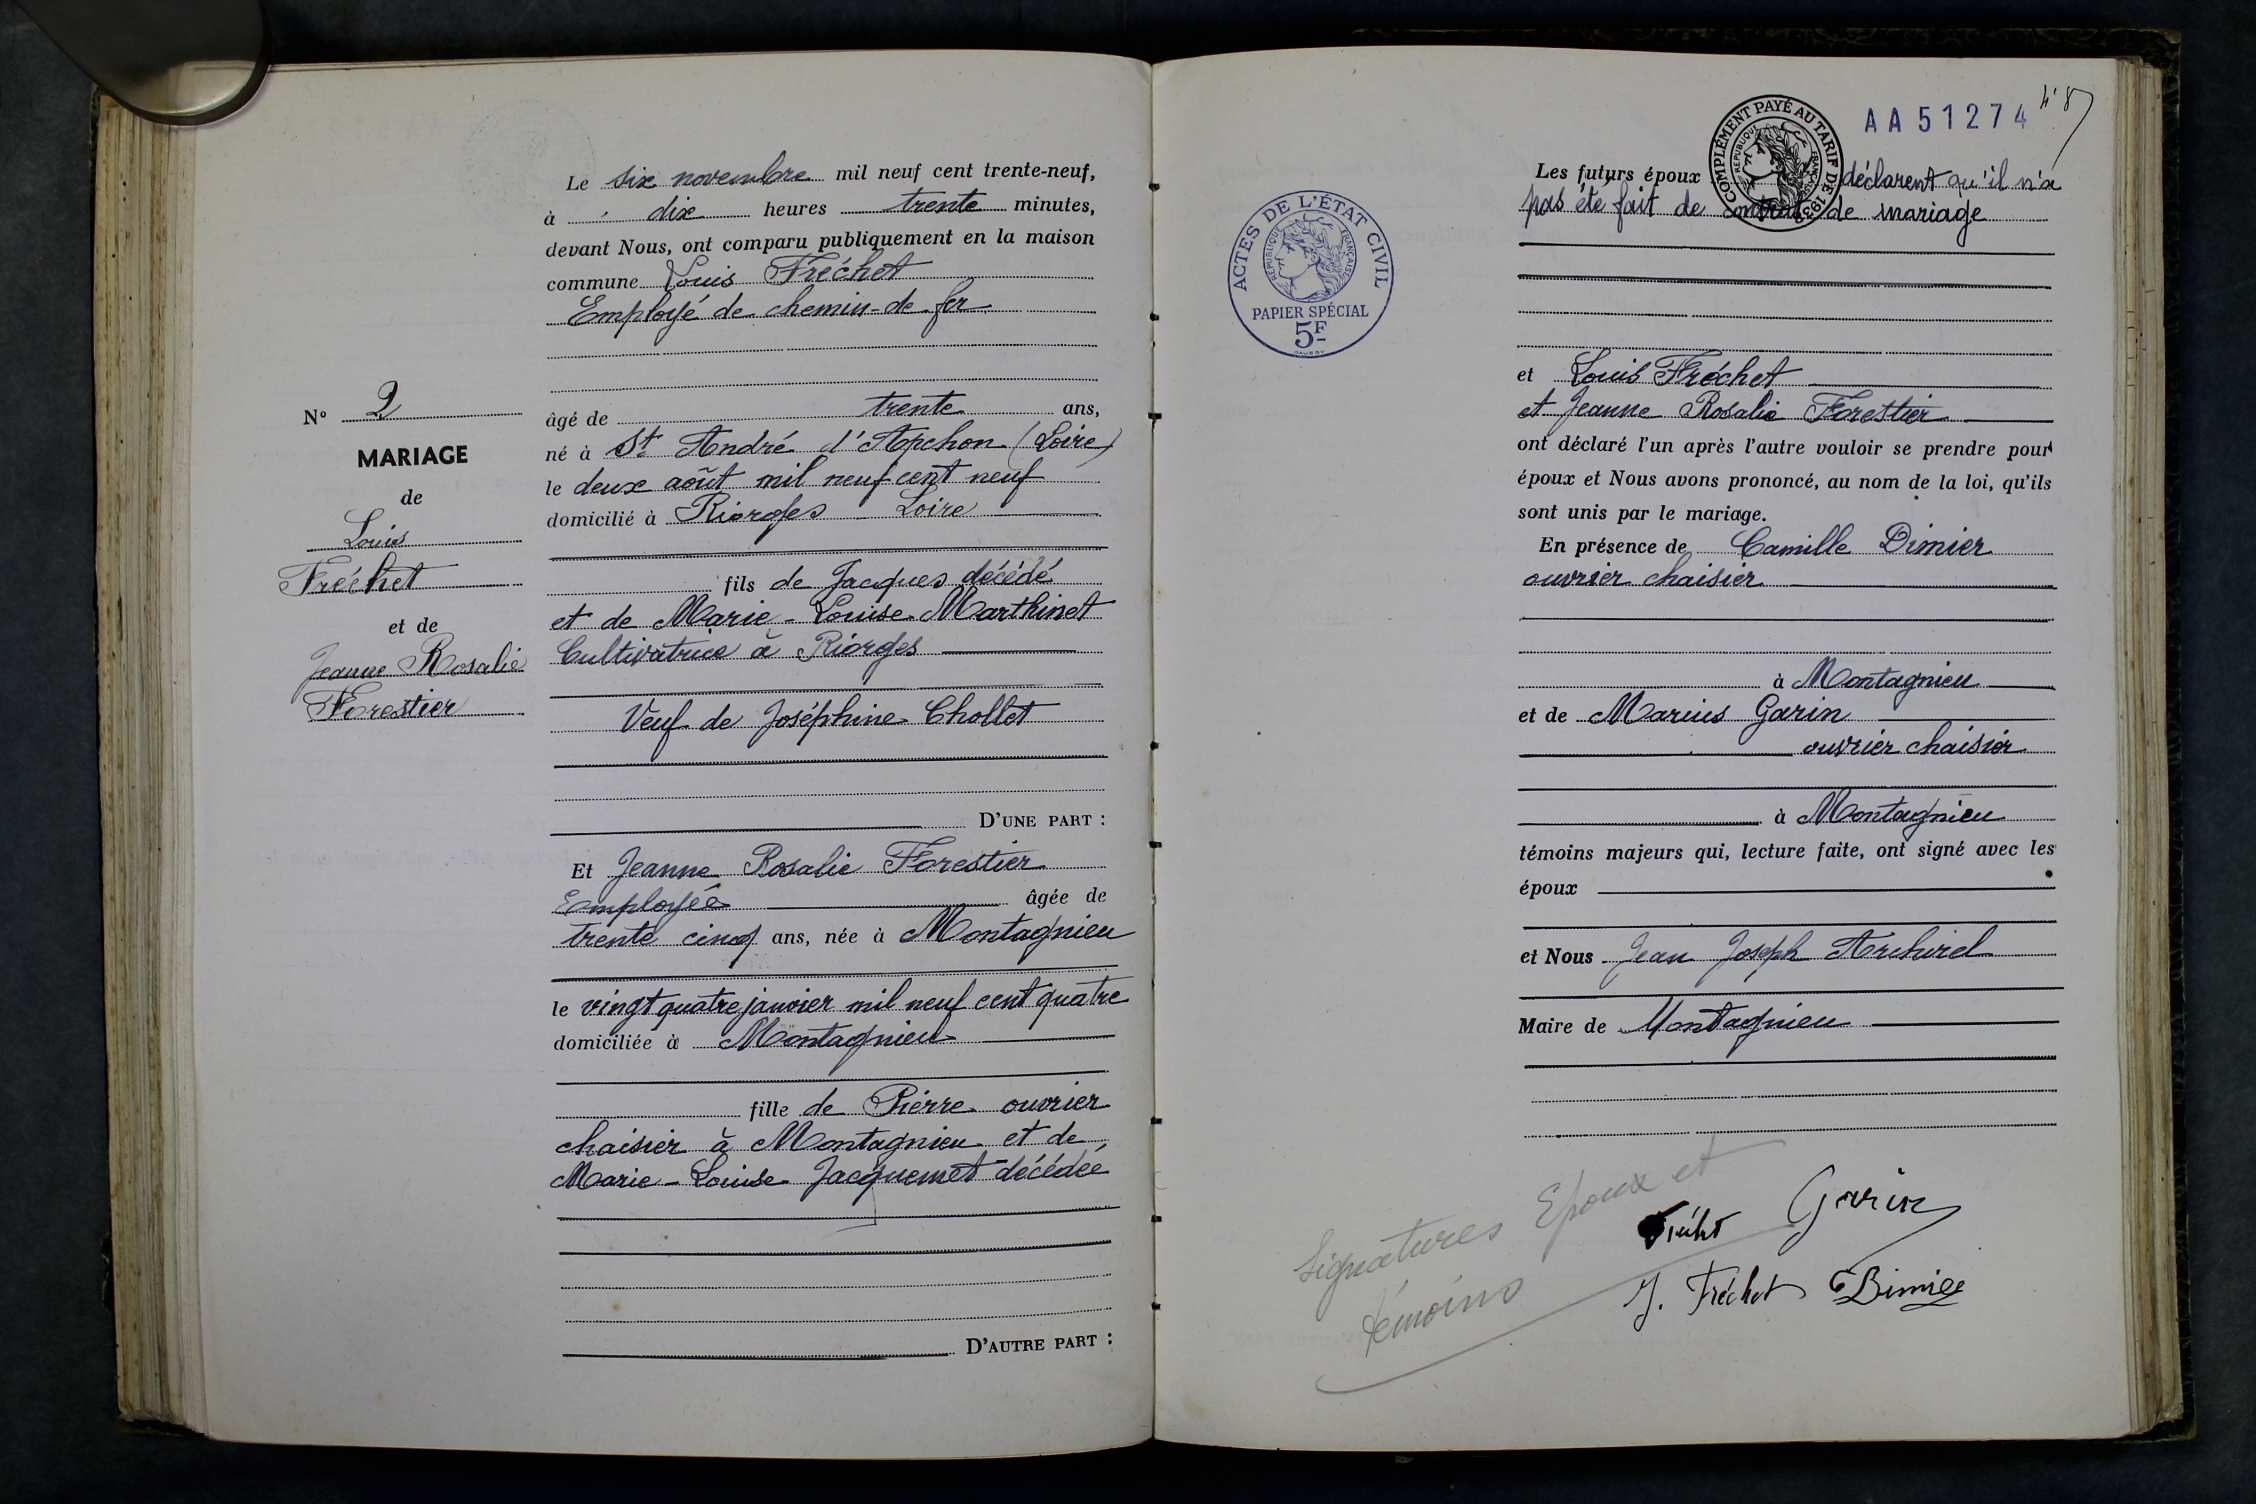 Le six novembre mil neuf cent trente-neuf,
à dix heures trente minutes,
devant Nous, ont comparu publiquement en la maison
commune Louis Fréchet
Employé de chemin-de fer
N° 2
MARIAGE
de
Louis
Fréchet
et de
Jeanne Rosalie
Forestier
âgé de trente ans,
né à St André d'Apchon (Loire)
le deux août mil neuf cent neuf
domicilié à Riorges Loire
fils de Jacques décédé
et de Marie-Louise Marthinet
Cultivatrice à Riorges
Veuf de Joséphine Chollet
D'UNE PART :
Et Jeanne Rosalie Forestier
Employée âgée de
trente cinq ans, née à Montagnieu
le vingt quatre janvier mil neuf cent quatre
domiciliée à Montagnieu
fille de Pierre ouvrier
chaisier à Montagnieu et de
Marie-Louise Jacquemet décédée
D'AUTRE PART :
ACTES DE L'ÉTAT CIVIL
RÉPUBLIQUE FRANÇAISE
PAPIER SPÉCIAL
5F
COMPLÉMENT PAYÉ AU TARIF DE 1938
RÉPUBLIQUE FRANÇAISE
AA51274
Les futurs époux déclarent qu'il n'a
pas été fait de contrat de mariage
et Louis Fréchet
et Jeanne Rosalie Forestier
ont déclaré l'un après l'autre vouloir se prendre pour
époux et Nous avons prononcé, au nom de la loi, qu'ils
sont unis par le mariage.
En présence de Camille Dimier
ouvrier chaisier
à Montagnieu
et de Marius Garin
ouvrier chaisier
à Montagnieu
témoins majeurs qui, lecture faite, ont signé avec les
époux
et Nous Jean Joseph
Maire de Montagnieu
Signatures Epoux et
témoins
Fréchet Garin
J. Fréchet C Dimier